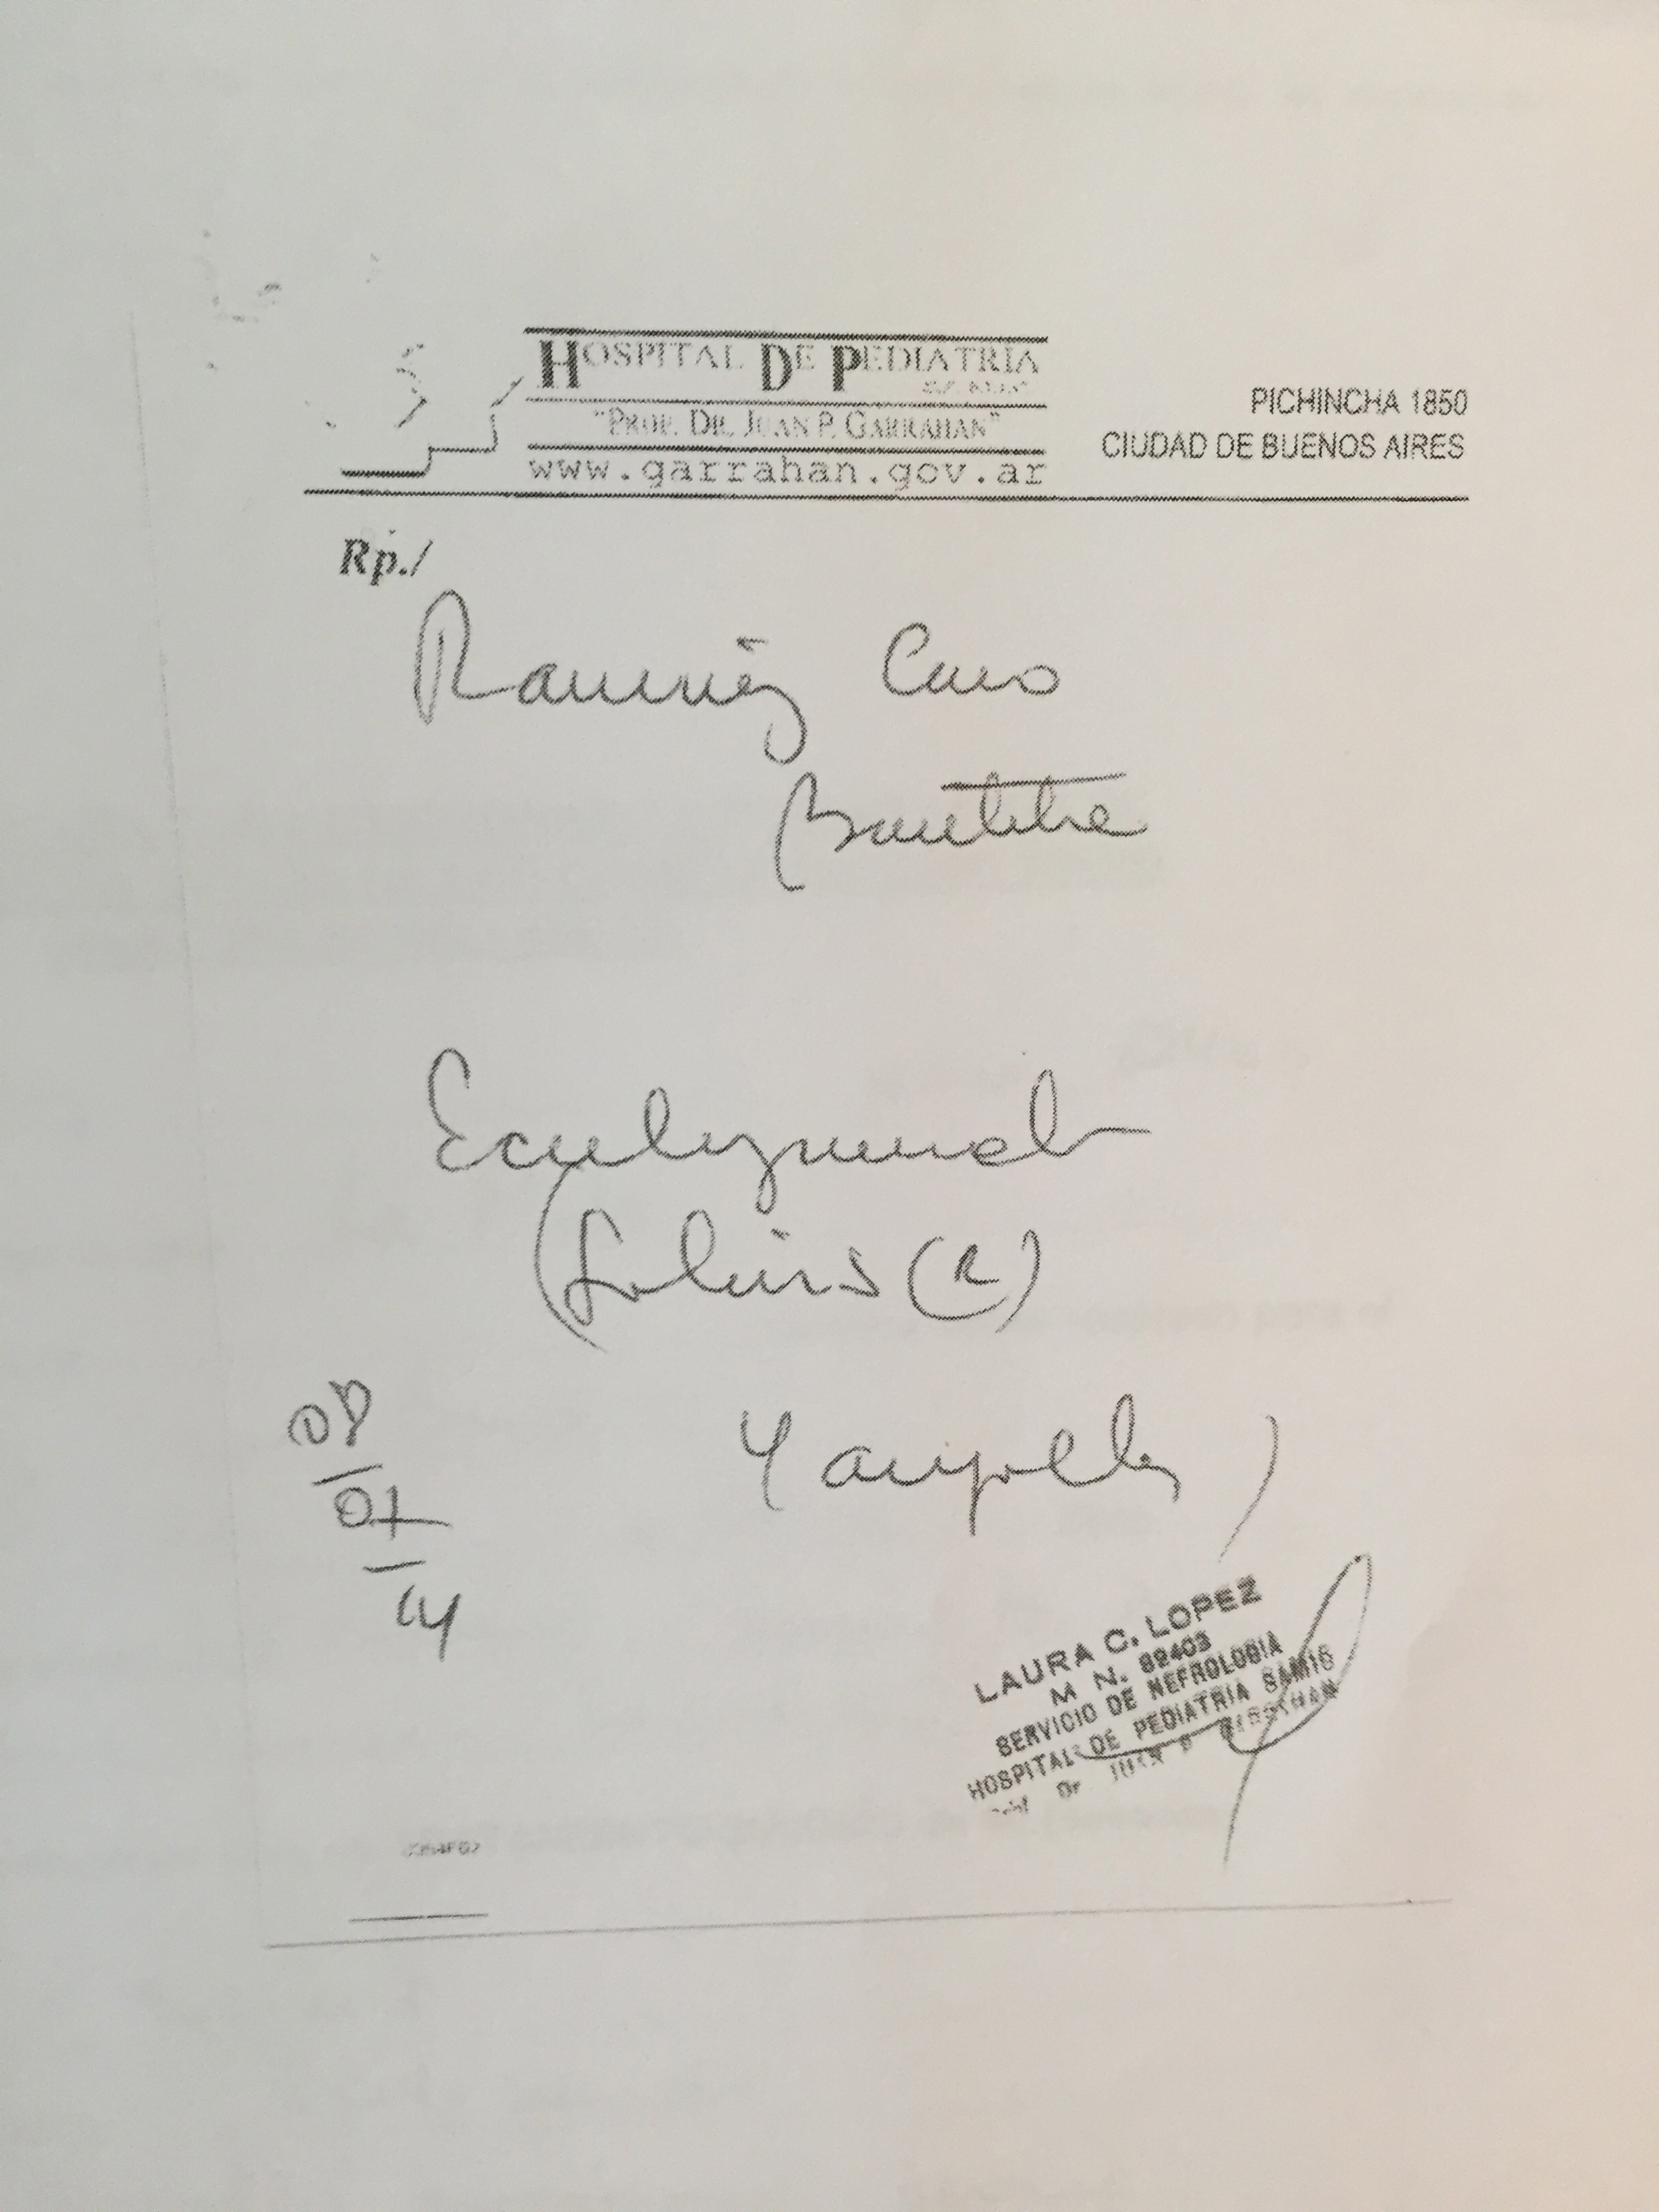 HOSPITAL DE PEDIATRÍA
"PROF. DR. JUAN P. GARRAHAN"
www.garrahan.gov.ar
PICHINCHA 1850
CIUDAD DE BUENOS AIRES
Rp./
Ramirez
Eculizumab
(Soliris (R)
4 ampollas )
08
/
07
/
14
LAURA C. LOPEZ
M N. 82403
SERVICIO DE NEFROLOGIA
HOSPITAL DE PEDIATRIA SAMIC
Dr JUAN P GARRAHAN